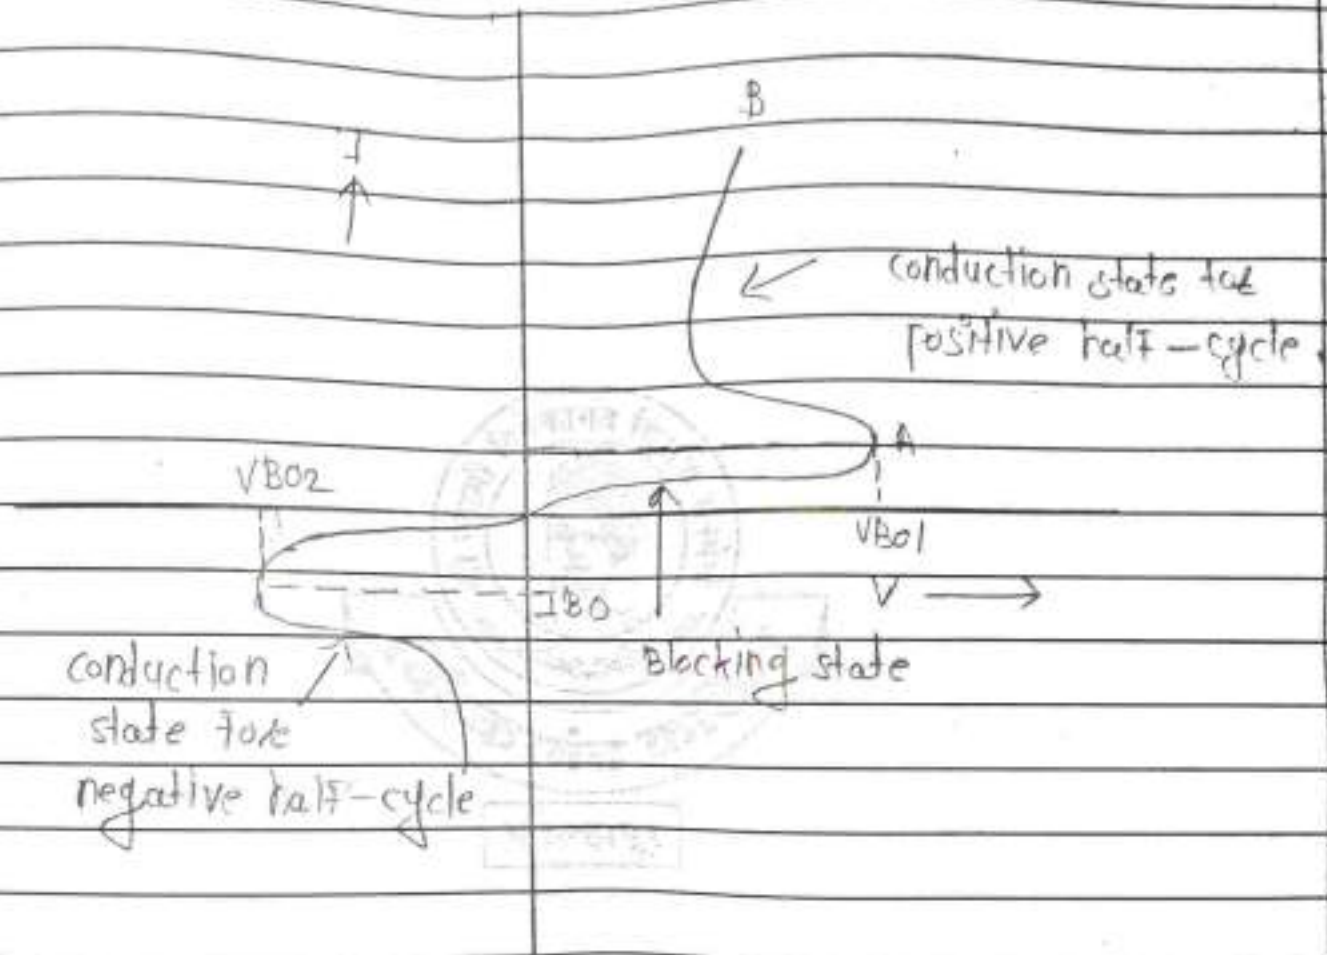 B
I
conduction state for
positive half-cycle
A
VBO2
VBO1
IBO
V
Blocking state
conduction
state for
negative half-cycle